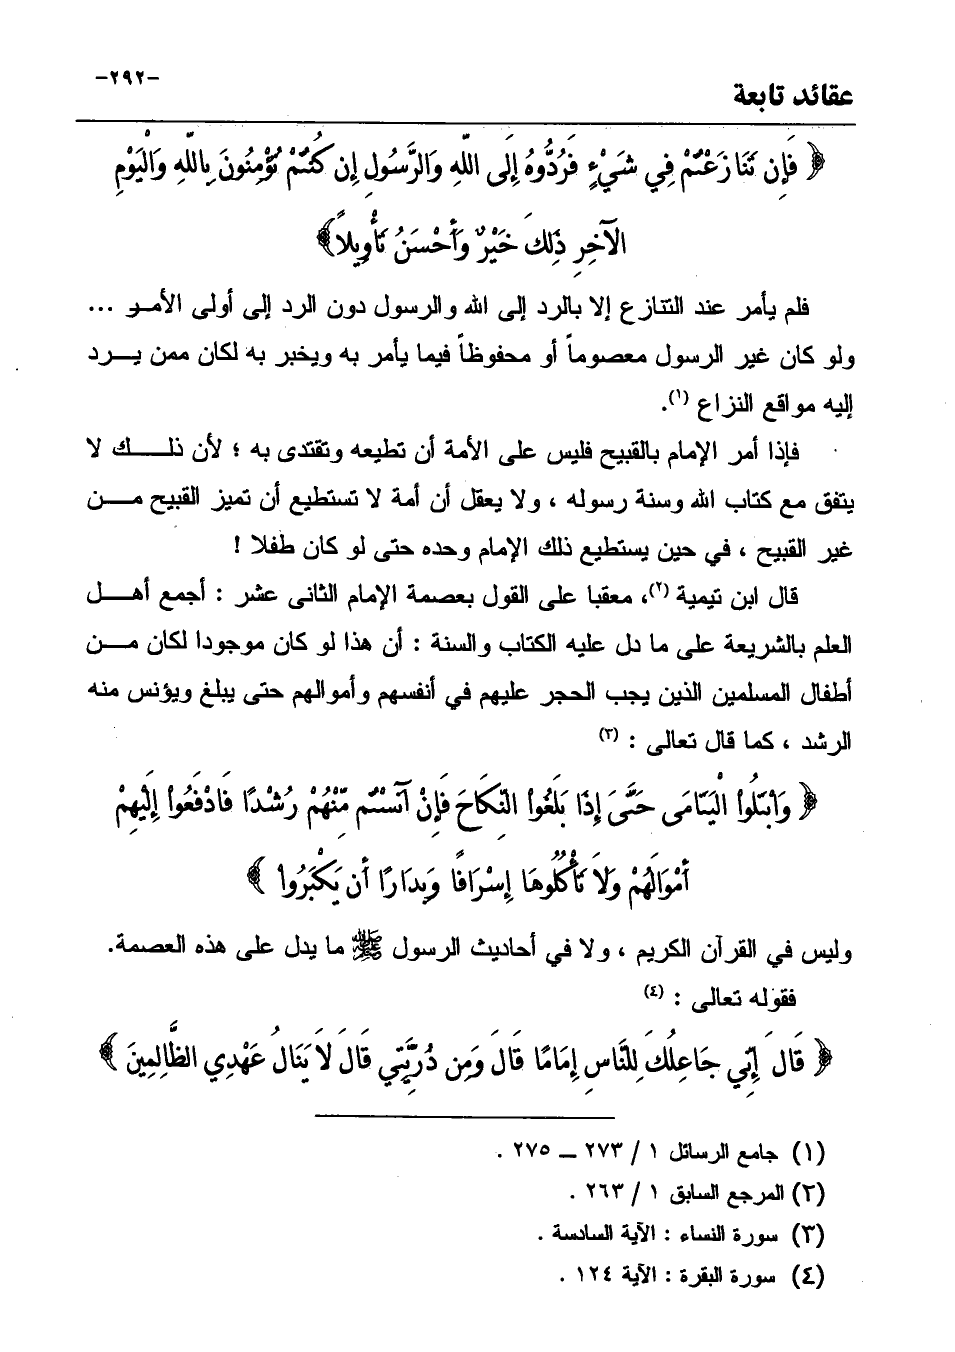 عقائد تابعة
-٢٩٢-
﴿ فَإِن تَنَازَعْتُمْ فِي شَيْءٍ فَرُدُّوهُ إِلَى اللّهِ وَالرَّسُولِ إِن كُنتُمْ تُؤْمِنُونَ بِاللّهِ وَالْيَوْمِ
الآخِرِ ذَلِكَ خَيْرٌ وَأَحْسَنُ تَأْوِيلاً﴾
فلم يأمر عند التنازع إلا بالرد إلى الله والرسول دون الرد إلى أولى الأمر ...
ولو كان غير الرسول معصوماً أو محفوظاً فيما يأمر به ويخبر به لكان ممن يرد
إليه مواقع النزاع (١).
فإذا أمر الإمام بالقبيح فليس على الأمة أن تطيعه وتقتدى به ؛ لأن ذلك لا
يتفق مع كتاب الله وسنة رسوله ، ولا يعقل أن أمة لا تستطيع أن تميز القبيح من
غير القبيح ، في حين يستطيع ذلك الإمام وحده حتى لو كان طفلا !
قال ابن تيمية (٢)، معقبا على القول بعصمة الإمام الثانى عشر : أجمع أهل
العلم بالشريعة على ما دل عليه الكتاب والسنة : أن هذا لو كان موجودا لكان من
أطفال المسلمين الذين يجب الحجر عليهم في أنفسهم وأموالهم حتى يبلغ ويؤنس منه
الرشد ، كما قال تعالى : (٣)
﴿ وَابْتَلُواْ الْيَتَامَى حَتَّىَ إِذَا بَلَغُواْ النِّكَاحَ فَإِنْ آنَسْتُم مِّنْهُمْ رُشْدًا فَادْفَعُواْ إِلَيْهِمْ
أَمْوَالَهُمْ وَلاَ تَأْكُلُوهَا إِسْرَافًا وَبِدَارًا أَن يَكْبَرُواْ ﴾
وليس في القرآن الكريم ، ولا في أحاديث الرسول ﷺ ما يدل على هذه العصمة.
فقوله تعالى : (٤)
﴿ قَالَ إِنِّي جَاعِلُكَ لِلنَّاسِ إِمَامًا قَالَ وَمِن ذُرِّيَّتِي قَالَ لاَ يَنَالُ عَهْدِي الظَّالِمِينَ ﴾
(١) جامع الرسائل ١ / ٢٧٣ – ٢٧٥ .
(٢) المرجع السابق ١ / ٢٦٣ .
(٣) سورة النساء : الآية السادسة .
(٤) سورة البقرة : الآية ١٢٤ .